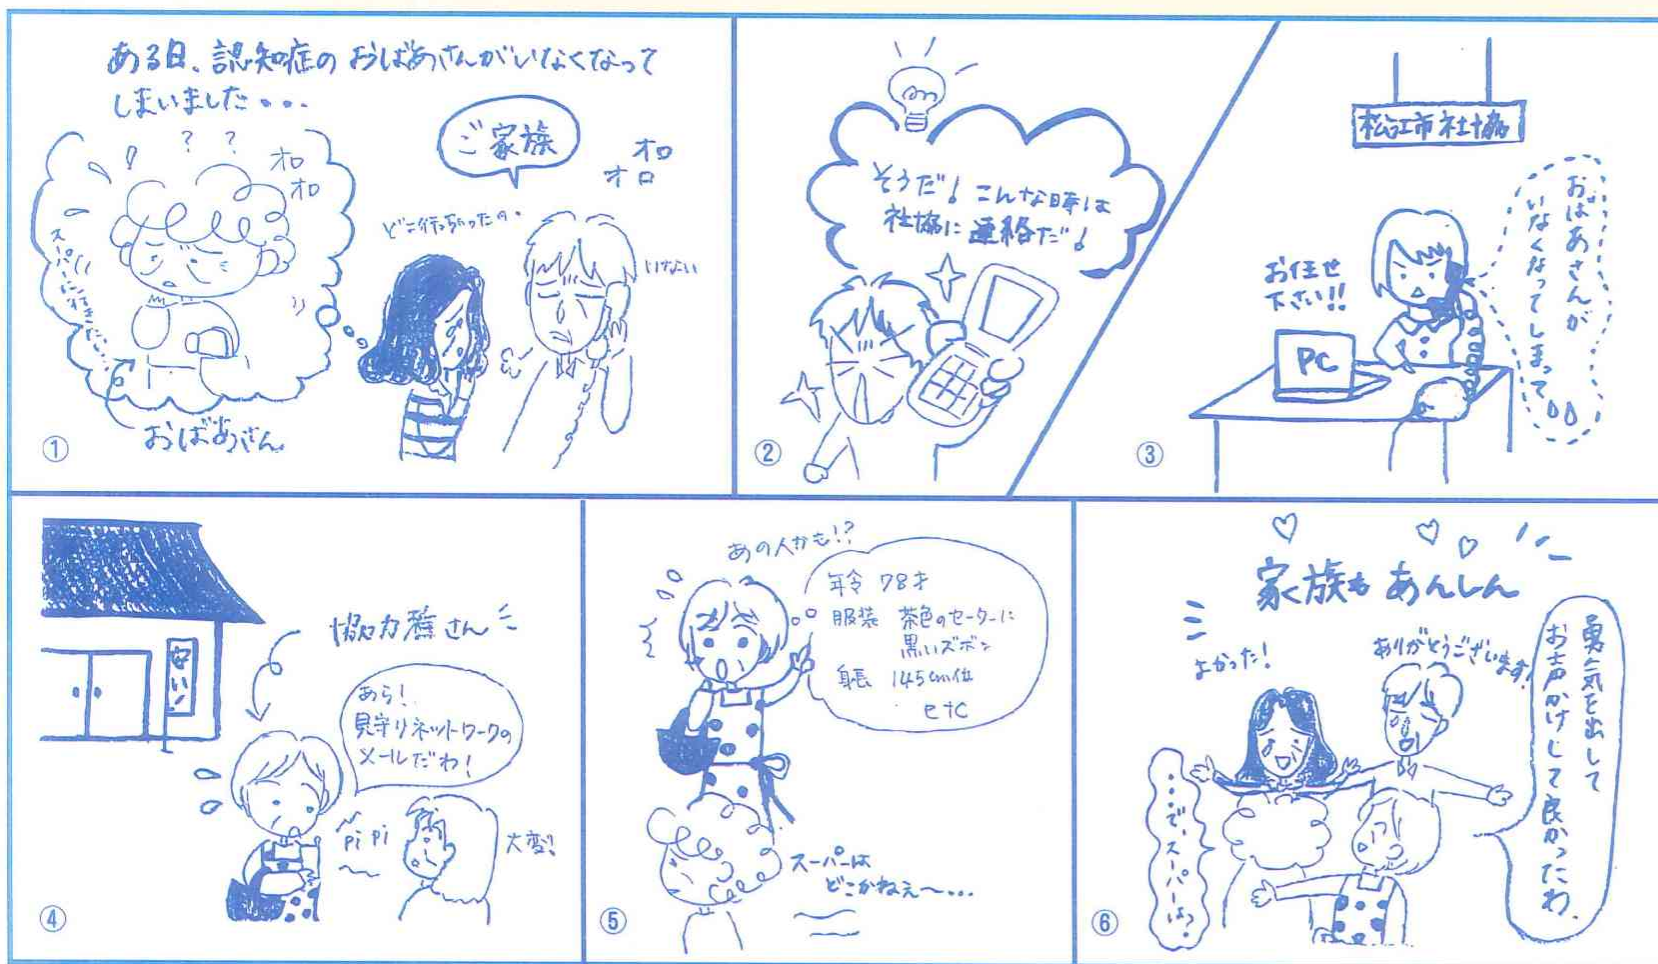 ある日、認知症のおばあさんがいなくなって
しまいました・・・
? ? ?
オロ
オロ
スーパーに行きたい…
おばあさん
ご家族
オロ
オロ
どこ行っちゃったの。
いない
①
そうだ!こんな時は
社協に連絡だ!
②
松江市社協
おばあさんが
いなくなってしまって
お任せ
下さい!!
PC
③
協力者さん
安い!
あら!
見守りネットワークの
メールだわ!
pi pi
大変!
④
あの人かも!?
年令 78才
服装 茶色のセーターに
黒いズボン
身長 145cm位
etc
スーパーは
どこかねえ〜・・・
⑤
家族もあんしん
よかった!
ありがとうございます!
勇気を出して
お声かけして良かったわ。
・・で、スーパーは?
⑥